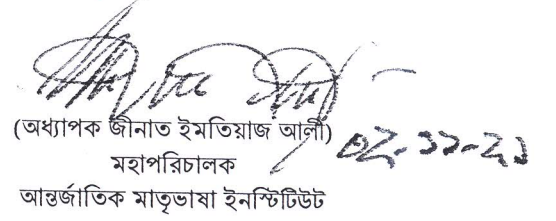 (অধ্যাপক জীনাত ইমতিয়াজ আলী) ০২-১১-২১
মহাপরিচালক
আন্তর্জাতিক মাতৃভাষা ইনস্টিটিউট